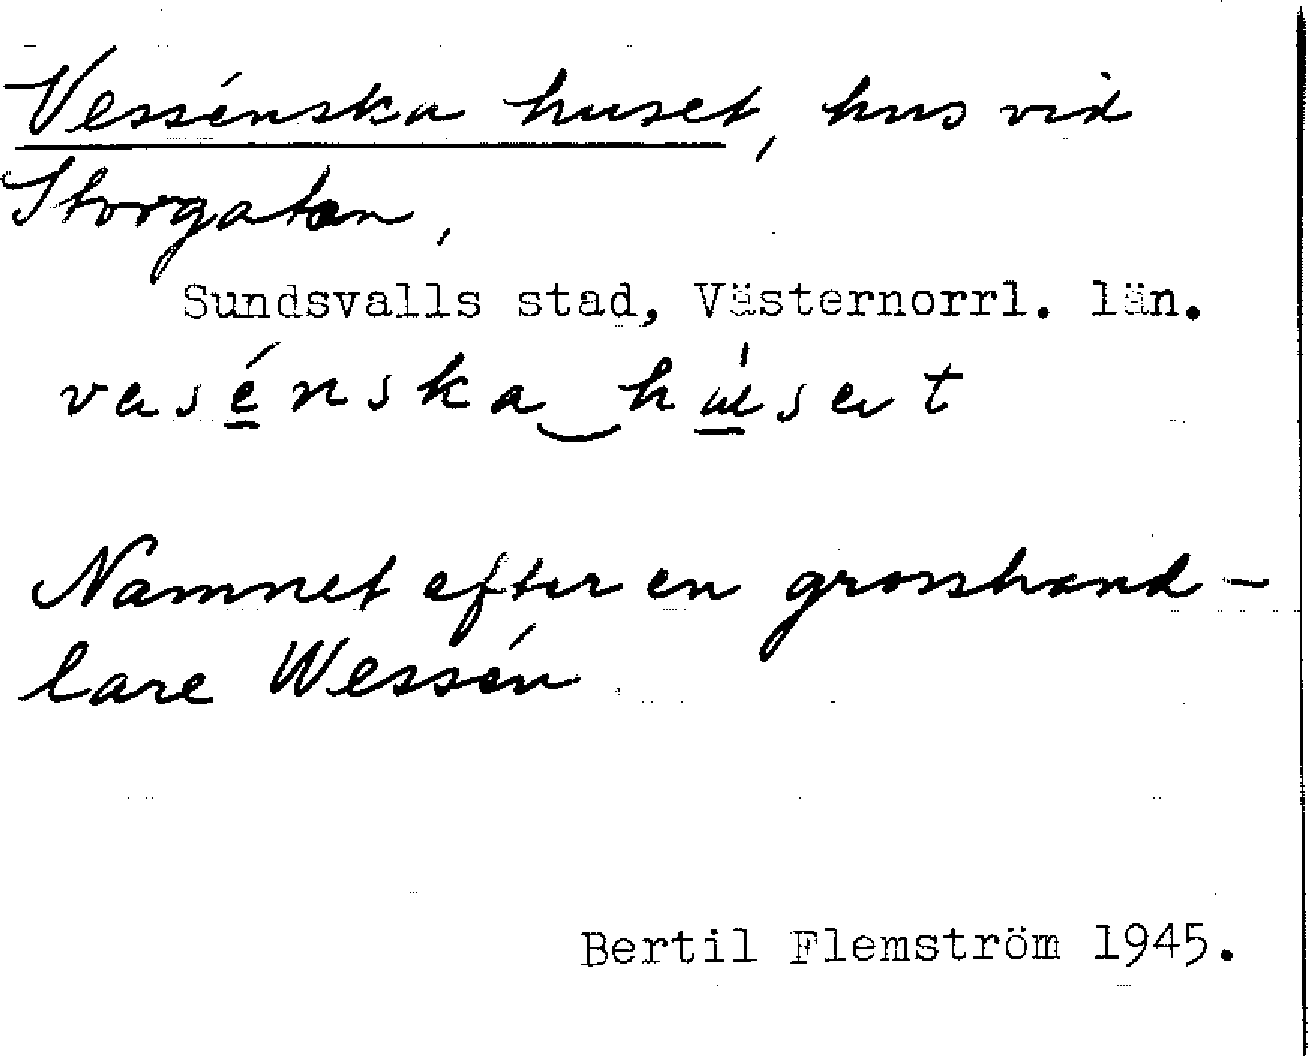 Vessénska huset, hus vid
Storgatan,
Sundsvalls stad, Västernorrl. län.
Namnet efter en grosshand-
lare Wessén
Bertil Flemström 1945.